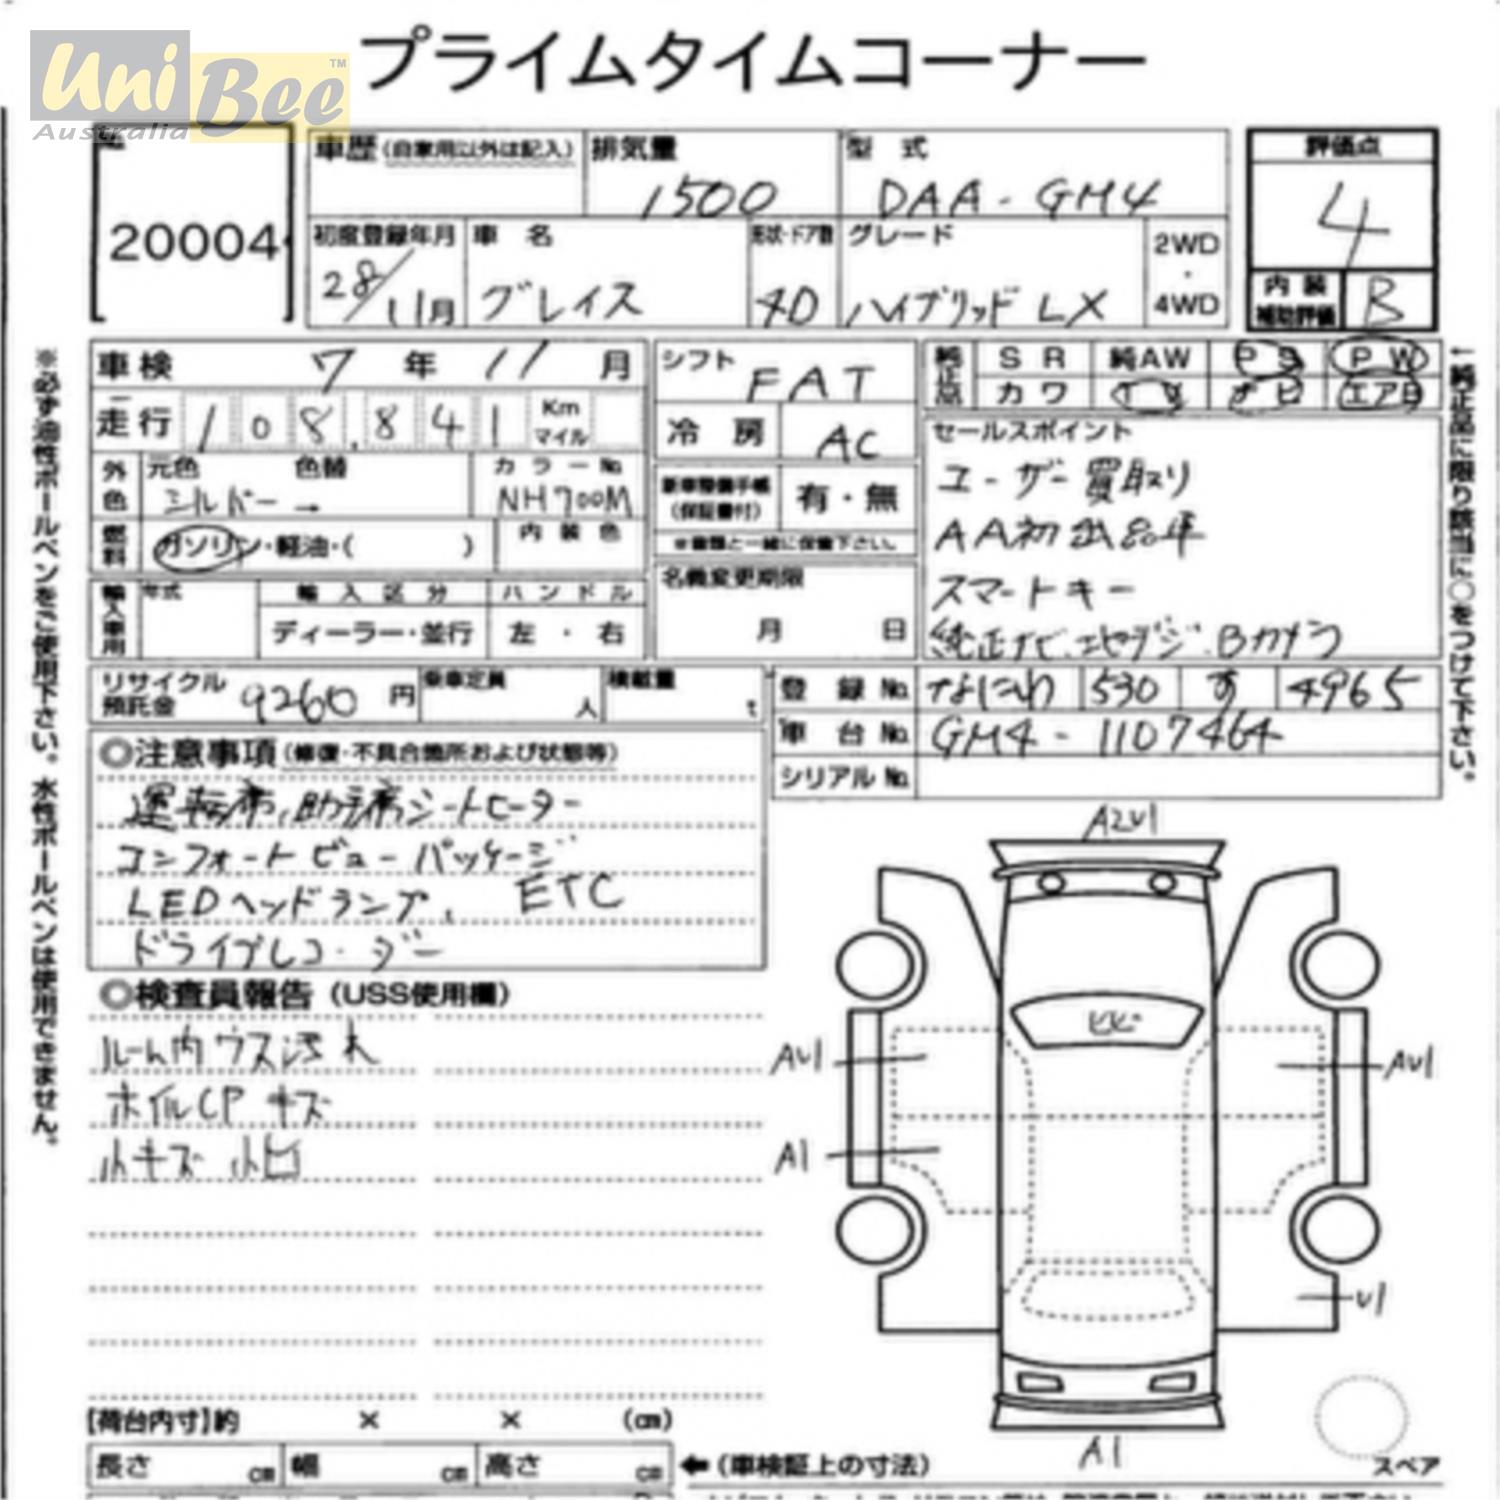 Uni Bee™
Australia
プライムタイムコーナー
20004
車歴(自家用以外は記入) 排気量 型 式 評価点
1500 DAA-GM4 4
初度登録年月 車 名 形状・ドア数 グレード 2WD・4WD
28/11月 グレイス 4D ハイブリッド LX
内装補助評価 B
車検 7 年 11 月 シフト FAT
純正品 SR 純AW PS PW
カワ エアB
走行 108,841 Km マイル 冷房 AC
セールスポイント
ユーザー買取り
AA初出品車
スマートキー
純正ナビ、エセデジ、Bカメラ
外色 元色 色替 カラーNo.
シルバー → NH700M
新車整備手帳(保証書付) 有・無
※書類と一緒に保管下さい。
燃料 ガソリン・軽油・( ) 内装色
輸入車用 年式 輸入区分 ハンドル
ディーラー・並行 左・右
名義変更期限
月 日
リサイクル預託金 9260円 乗車定員 人 積載量 t
登録No. なにわ 530 す 4965
車台No. GM4-1107464
シリアルNo.
◎注意事項(修復・不具合箇所および状態等)
運転席、助手席シートヒーター
コンフォートビューパッケージ
LEDヘッドランプ、 ETC
ドライブレコ・ジー
◎検査員報告(USS使用欄)
ルーム内ウスヨゴレ
ホイルCP キズ
小キズ 小凹
A2U1
ヒビ
AU1
AU1
A1
U1
A1
【荷台内寸】約 × × (cm)
長さ cm 幅 cm 高さ cm ←(車検証上の寸法)
スペア
※必ず油性ボールペンをご使用下さい。水性ボールペンは使用できません。
↑純正品に限り該当に○をつけて下さい。